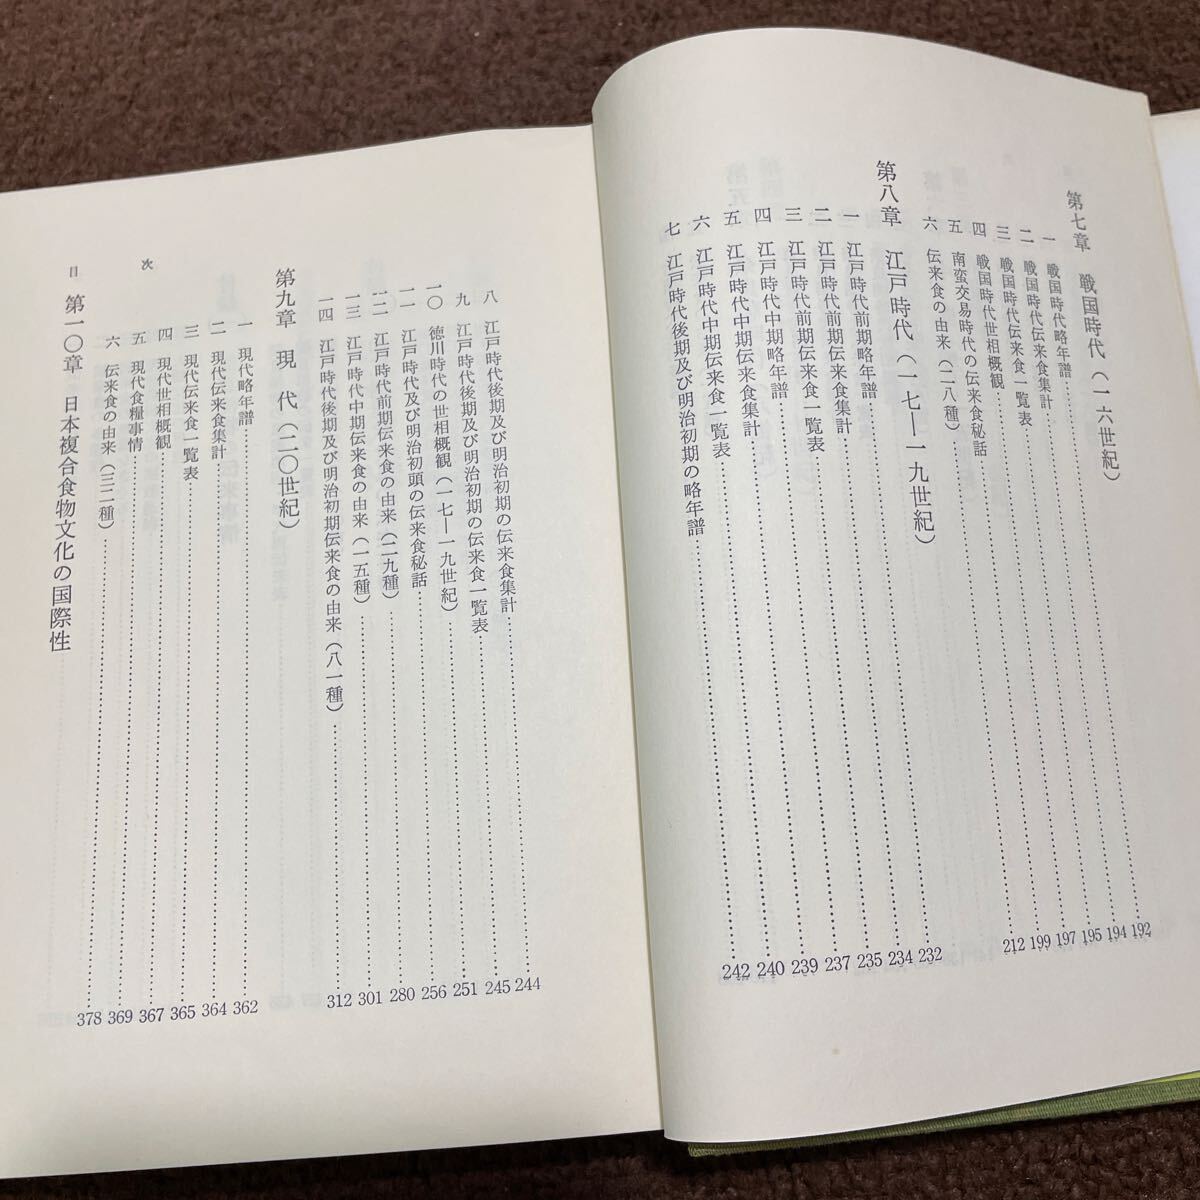 第七章 戦国時代(一六世紀)
一 戦国時代略年譜……192
二 戦国時代伝来食集計……194
三 戦国時代伝来食一覧表……195
四 戦国時代世相概観……197
五 南蛮交易時代の伝来食秘話……199
六 伝来食の由来(二八種)……212
第八章 江戸時代(一七—一九世紀)
一 江戸時代前期略年譜……232
二 江戸時代前期伝来食集計……234
三 江戸時代前期伝来食一覧表……235
四 江戸時代中期略年譜……237
五 江戸時代中期伝来食集計……239
六 江戸時代中期伝来食一覧表……240
七 江戸時代後期及び明治初期の略年譜……242
八 江戸時代後期及び明治初期の伝来食集計……244
九 江戸時代後期及び明治初期の伝来食一覧表……245
一〇 徳川時代の世相概観(一七—一九世紀)……251
一一 江戸時代及び明治初頭の伝来食秘話……256
一二 江戸時代前期伝来食の由来(二九種)……280
一三 江戸時代中期伝来食の由来(一五種)……301
一四 江戸時代後期及び明治初期伝来食の由来(八一種)……312
第九章 現代(二〇世紀)
一 現代略年譜……362
二 現代伝来食集計……364
三 現代伝来食一覧表……365
四 現代世相概観……367
五 現代食糧事情……369
六 伝来食の由来(三二種)……378
第一〇章 日本複合食物文化の国際性
目次